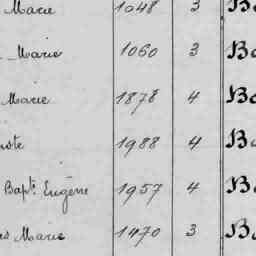 Marie 1048 3 B
Marie 1060 3 Ba
Marie 1878 4 Ba
1988 4 Ba
Bapt. Eugène 1957 4 Ba
Marie 1470 3 Ba